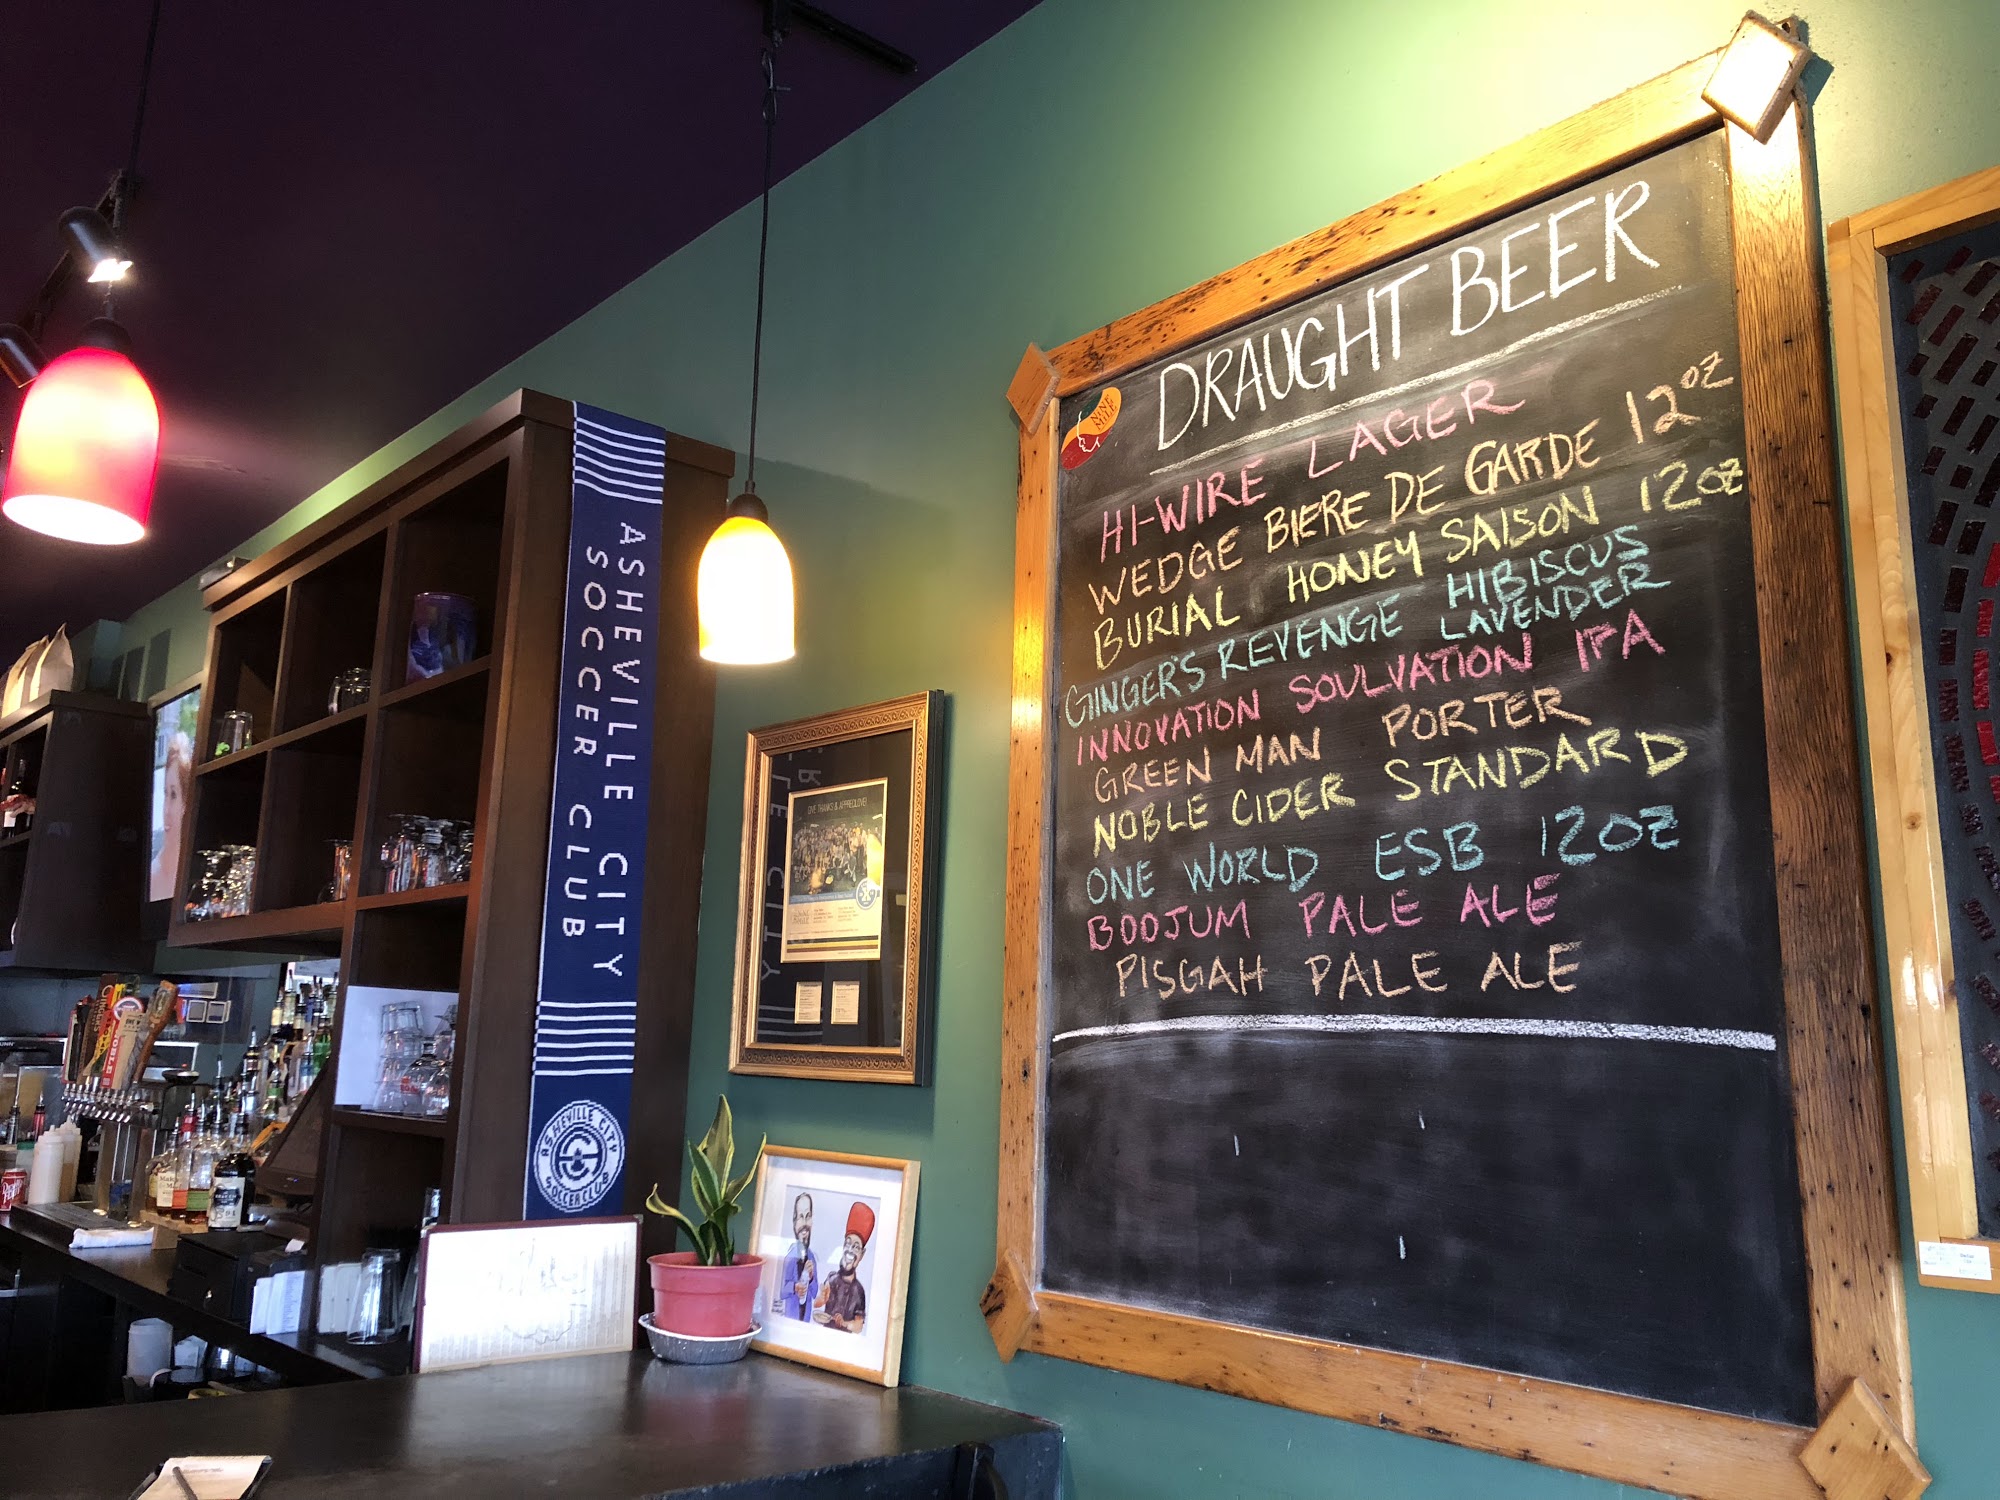 DRAUGHT BEER
NINE
MILE
HI-WIRE LAGER
WEDGE BIERE DE GARDE 12OZ
BURIAL HONEY SAISON 12OZ
GINGER'S REVENGE HIBISCUS
LAVENDER
INNOVATION SOULVATION IPA
GREEN MAN PORTER
NOBLE CIDER STANDARD
ONE WORLD ESB 12OZ
BOOJUM PALE ALE
PISGAH PALE ALE
ASHEVILLE CITY
SOCCER CLUB
ASHEVILLE CITY
SOCCER CLUB
GIVE THANKS & APPRECILOVE!